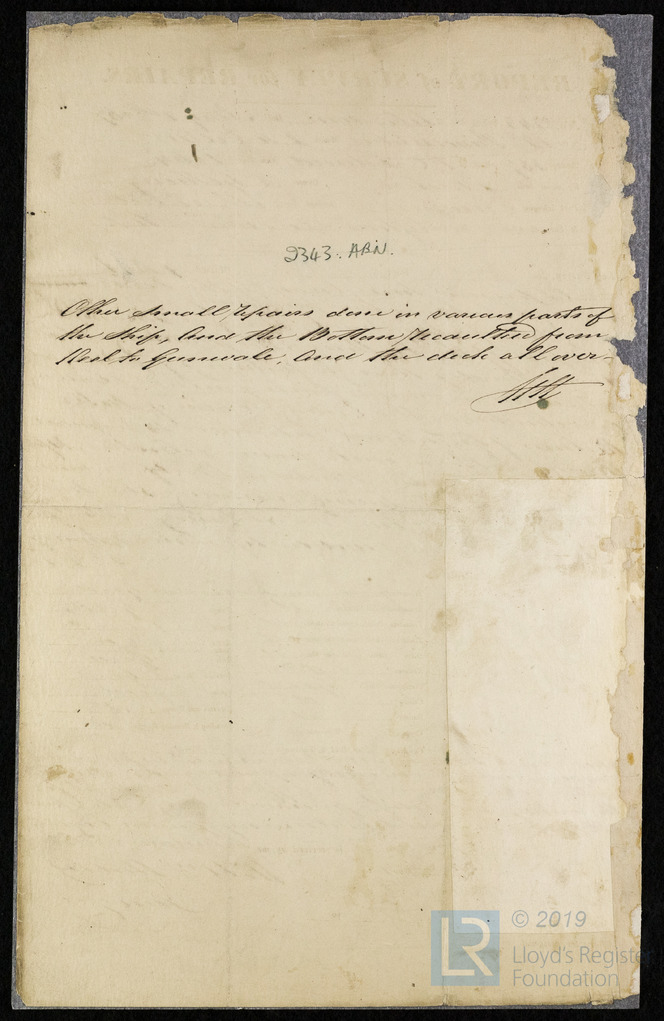 2343. ABN.
Other small repairs done in various parts of
the Ship, and the Bottom recaulked from
Keel to Gunwale, and the deck all over.
LR
© 2019
Lloyd's Register
Foundation